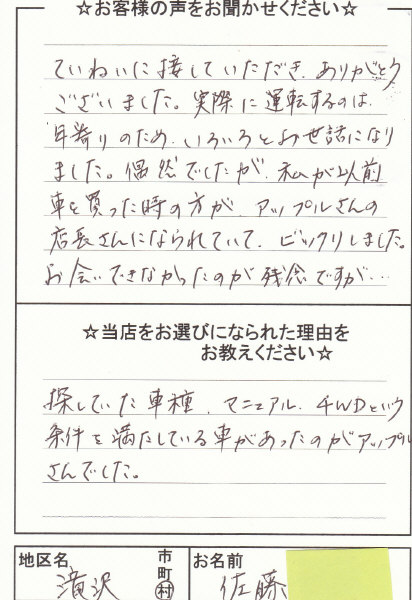 ☆お客様の声をお聞かせください☆
ていねいに接していただき、ありがとう
ございました。実際に運転するのは、
年寄りのため、いろいろとお世話になり
ました。偶然でしたが、私が以前
車を買った時の方が、アップルさんの
店長さんになられていて、ビックリしました。
お会いできなかったのが残念ですが…
☆当店をお選びになられた理由を
お教えください☆
探していた車種、マニュアル、4WDという
条件を満たしている車があったのがアップル
さんでした。
地区名 滝沢 市町村
お名前 佐藤